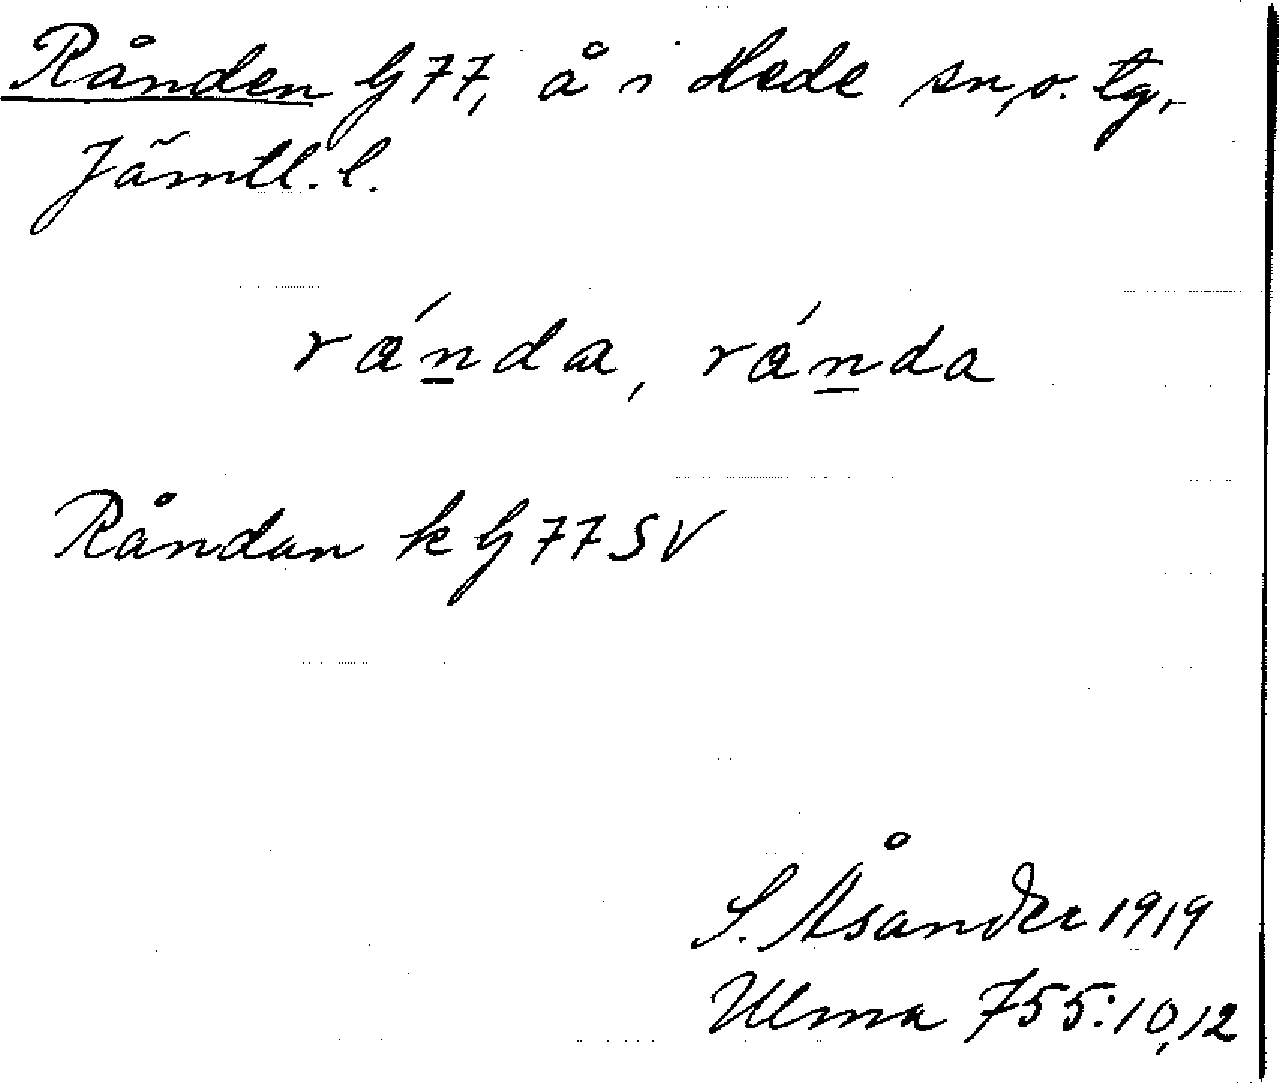 Rånden G 77, å i Hede sn, o. tg,
Jämtl. l.
rǽn̲da, rǽn̲da
Råndan k G 77 SV
S. Åsander 1919
Ulma 755:10,12